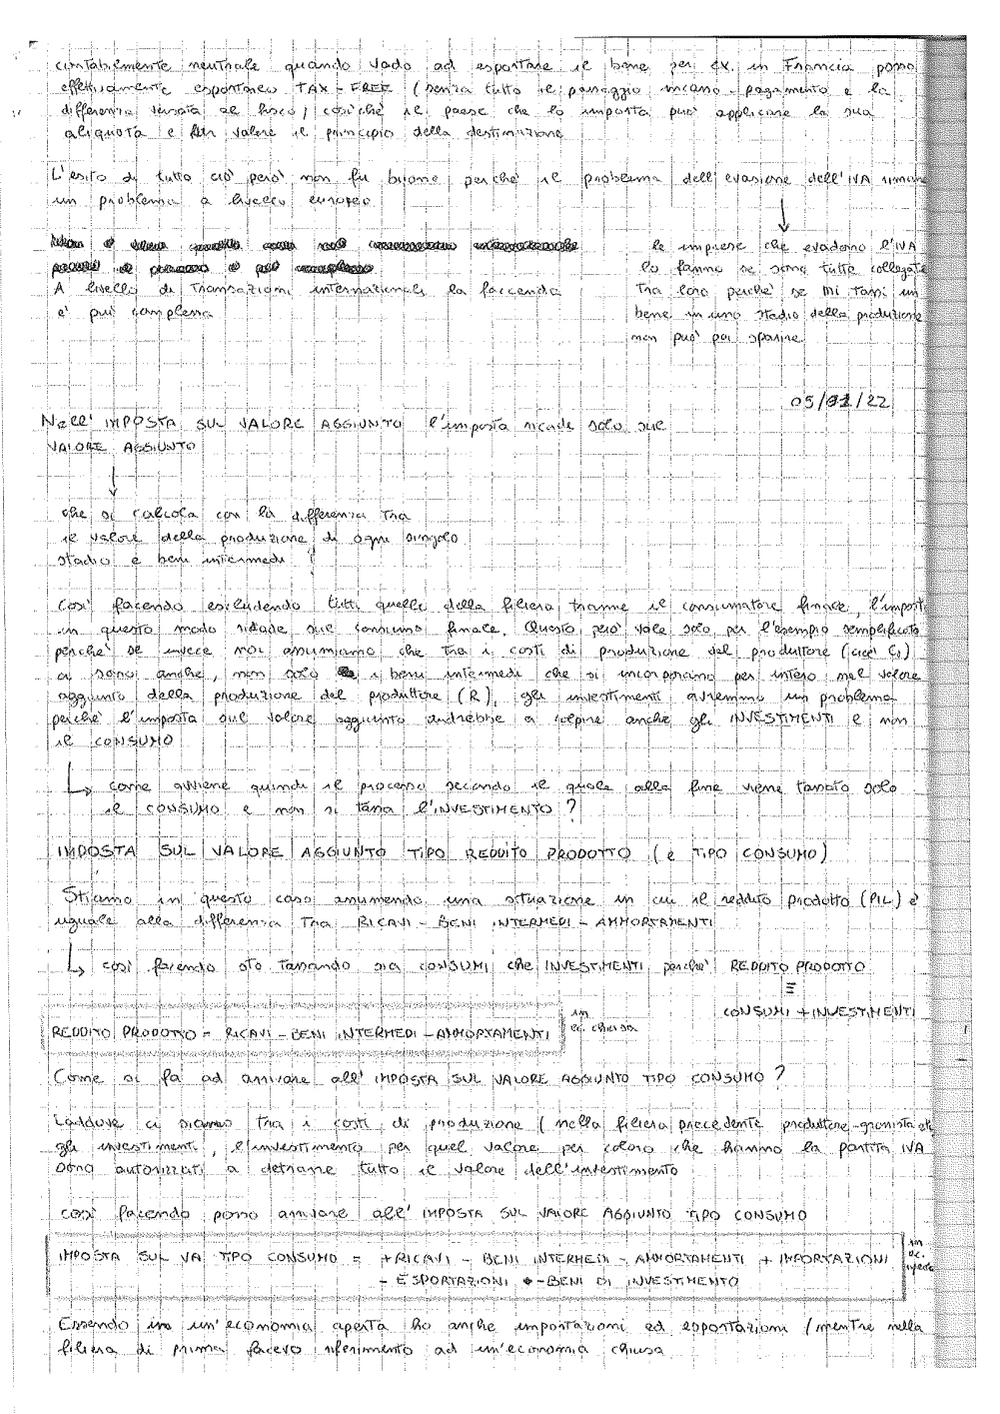 contabilmente neutrale quando vado ad esportare il bene per ex. in Francia posso
effettivamente esportarlo TAX-FREE (senza tutto il passaggio incasso-pagamento e la
differenza versata al fisco) cosìchè il paese che lo importa può applicare la sua
aliquota e far valere il principio della destinazione
L'esito di tutto ciò però non fu buono perchè il problema dell'evasione dell'IVA rimane
un problema a livello europeo
le imprese che evadono l'IVA
lo fanno se sono tutte collegate
tra loro perchè se mi tassi un
bene in uno stadio della produzione
non può poi sparire
A livello di transazioni internazionali la faccenda
e' più complessa
05/22
Nell' IMPOSTA SUL VALORE AGGIUNTO l'imposta ricade solo sul
VALORE AGGIUNTO
che si calcola con la differenza tra
il valore della produzione di ogni singolo
stadio e beni intermedi
Così facendo escludendo tutti quelli della filiera tranne il consumatore finale, l'imposta
in questo modo ricade sul consumo finale. Questo però vale solo per l'esempio semplificato
perchè se invece noi assumiamo che tra i costi di produzione del produttore (cioè C1)
ci sono anche, non solo i beni intermedi che si incorporano per intero nel valore
aggiunto della produzione del produttore (R), gli investimenti avremmo un problema
perchè l'imposta sul valore aggiunto andrebbe a colpire anche gli INVESTIMENTI e non
il CONSUMO
↳ come avviene quindi il processo secondo il quale alla fine viene tassato solo
il CONSUMO e non si tassa l'INVESTIMENTO?
IMPOSTA SUL VALORE AGGIUNTO TIPO REDDITO PRODOTTO (e TIPO CONSUMO)
Stiamo in questo caso assumendo una situazione in cui il reddito prodotto (PIL) è
uguale alla differenza tra RICAVI - BENI INTERMEDI - AMMORTAMENTI
↳ così facendo sto tassando sia CONSUMI che INVESTIMENTI perchè REDDITO PRODOTTO
≡
CONSUMI + INVESTIMENTI
REDDITO PRODOTTO = RICAVI - BENI INTERMEDI - AMMORTAMENTI
in
ec. chiusa
Come si fa ad arrivare all' IMPOSTA SUL VALORE AGGIUNTO TIPO CONSUMO?
Laddove ci siano tra i costi di produzione (nella filiera precedente produttore-grossista etc
gli investimenti, l'investimento per quel valore per coloro che hanno la partita IVA
sono autorizzati a detrarne tutto il valore dell'investimento
così facendo posso arrivare all' IMPOSTA SUL VALORE AGGIUNTO TIPO CONSUMO
IMPOSTA SUL VA TIPO CONSUMO = +RICAVI - BENI INTERMEDI - AMMORTAMENTI + IMPORTAZIONI
- ESPORTAZIONI - BENI DI INVESTIMENTO
in
ec.
aperta
Essendo in un'economia aperta ho anche importazioni ed esportazioni (mentre nella
filiera di prima facevo riferimento ad un'economia chiusa